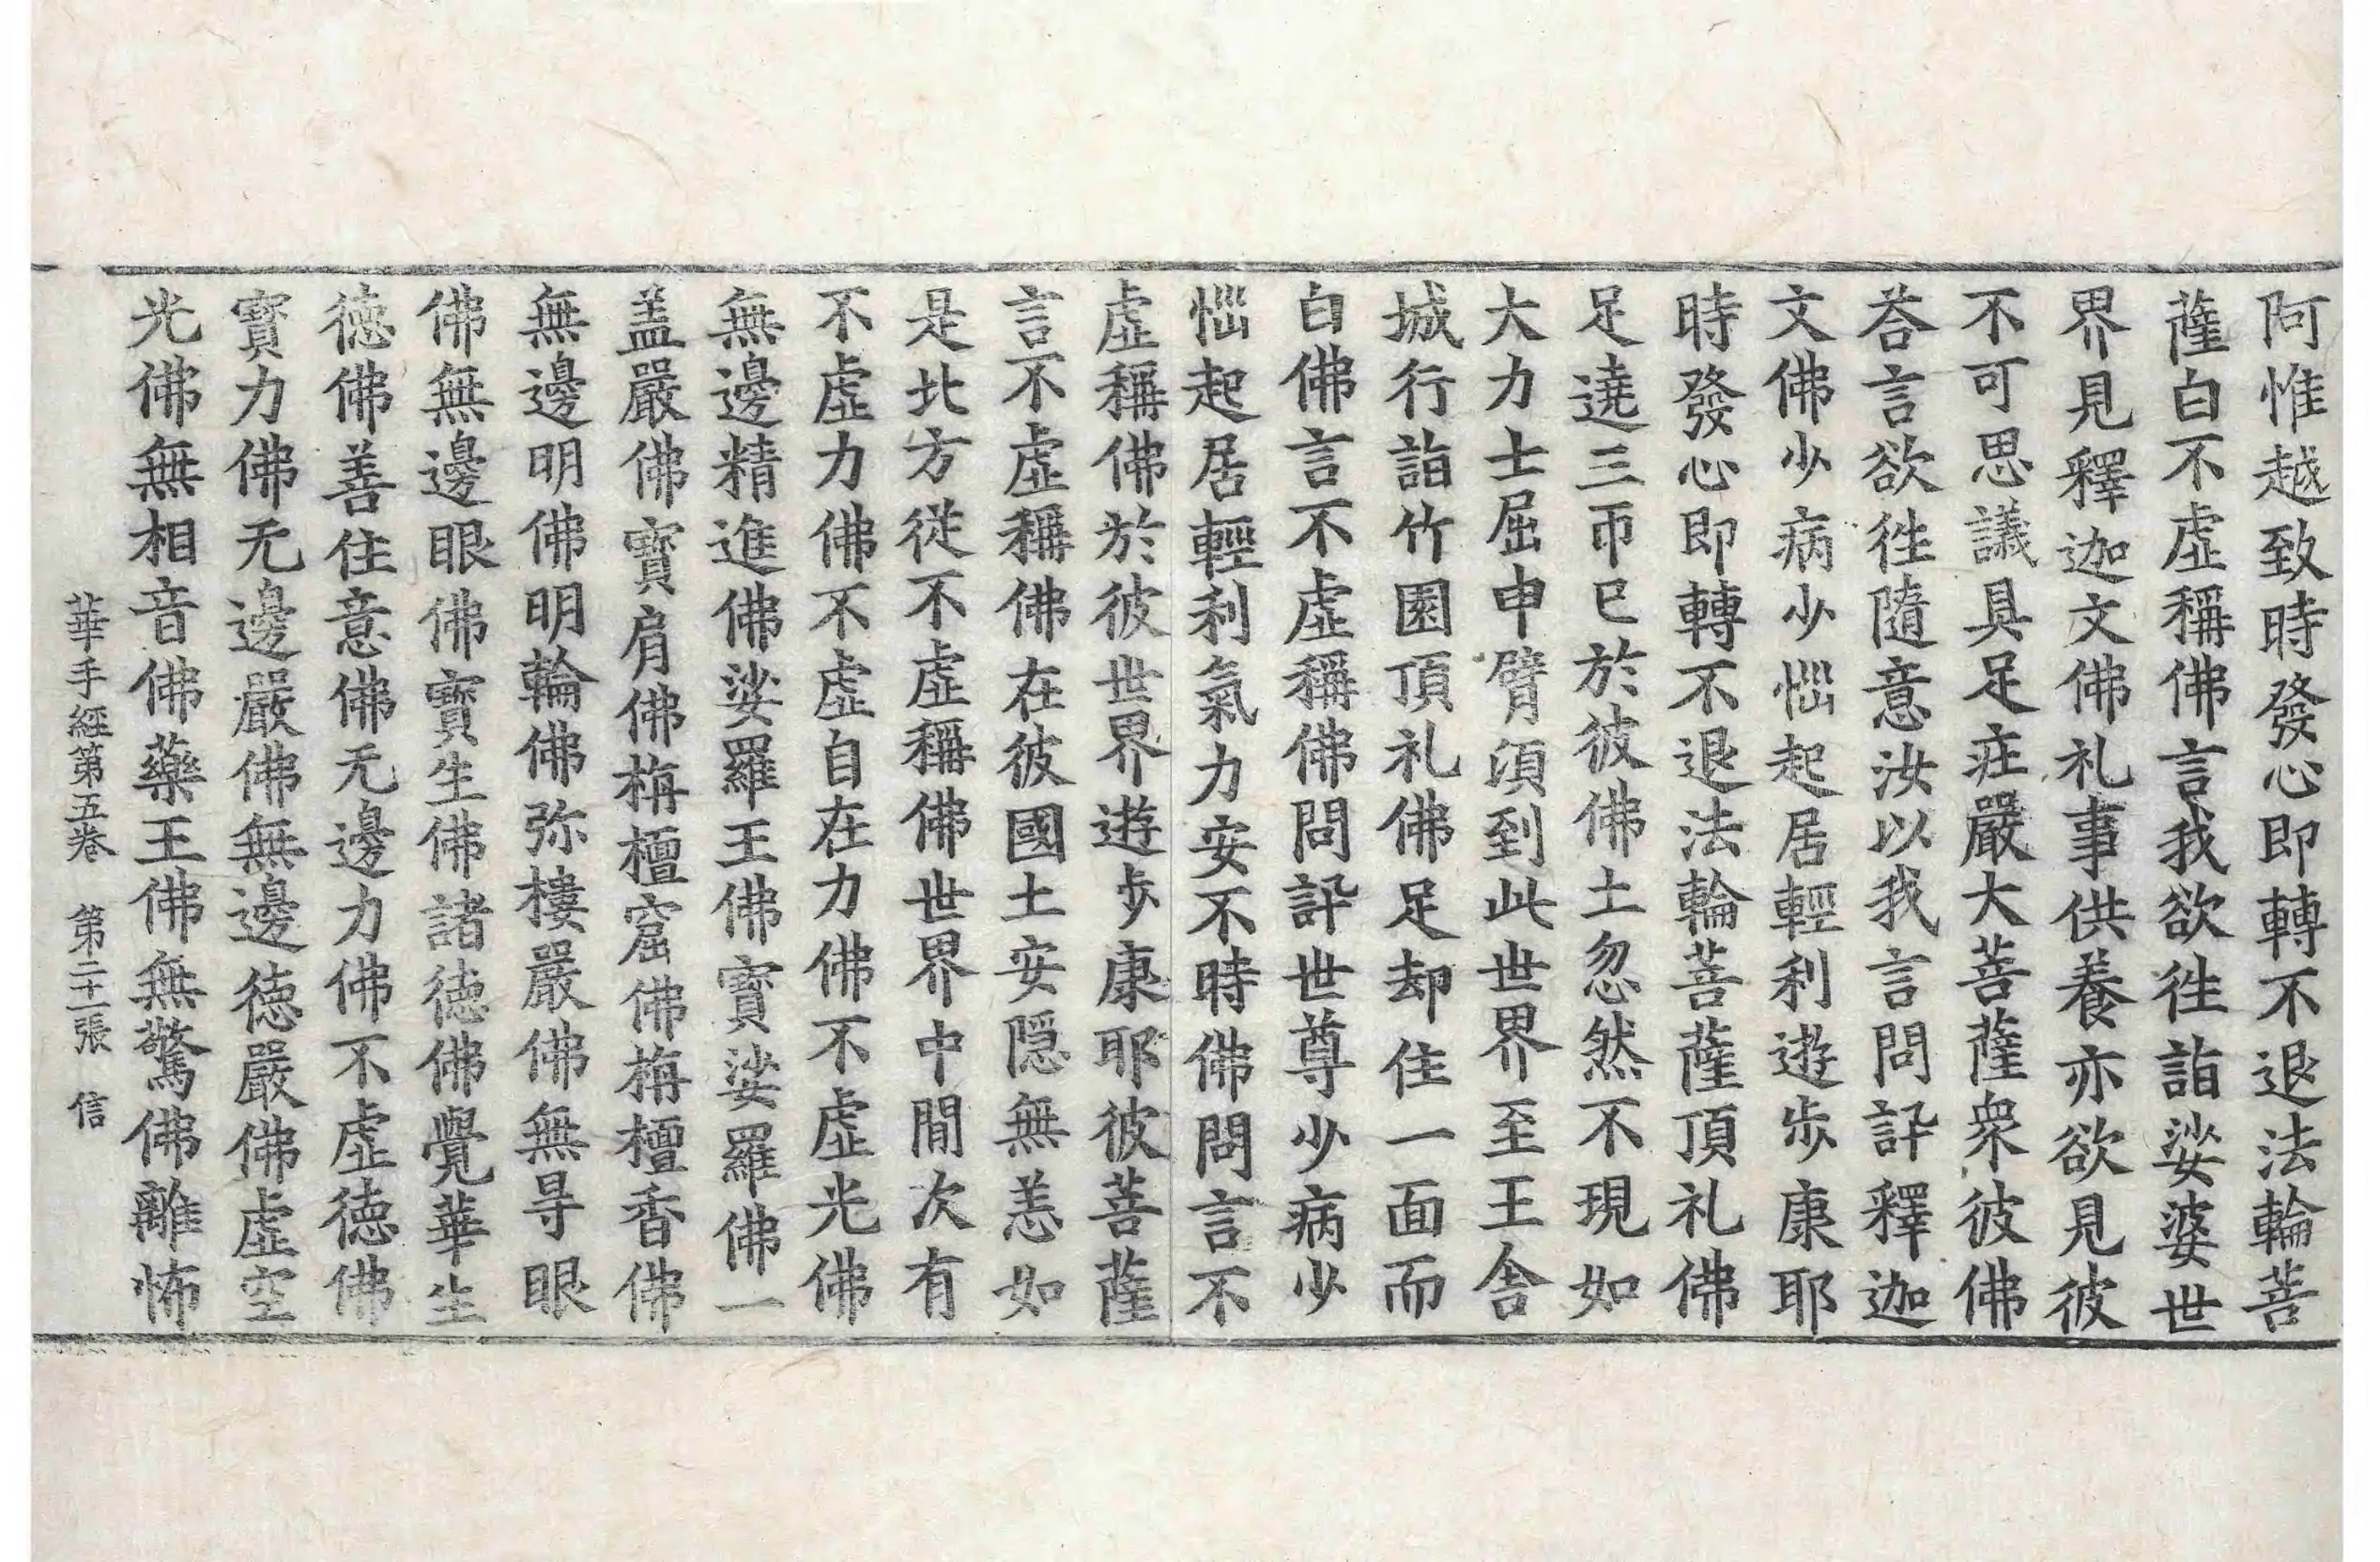 阿惟越致時發心即轉不退法輪菩
薩白不虛稱佛言我欲徃詣娑婆世
界見釋迦文佛礼事供養亦欲見彼
不可思議具足疘嚴大菩薩衆彼佛
荅言欲徃隨意汝以我言問訊釋迦
文佛少病少惱起居輕利遊步康耶
時發心即轉不退法輪菩薩頂礼佛
足遶三帀已於彼佛土忽然不現如
大力士屈申臂湏到此世界至王舍
城行詣竹園頂礼佛足却住一面而
白佛言不虛稱佛問訊世尊少病少
惱起居輕利氣力安不時佛問言不
虛稱佛於彼世界遊步康耶彼菩薩
言不虛稱佛在彼國土安隱無恙如
是北方從不虛稱佛世界中間次有
不虛力佛不虛自在力佛不虛光佛
無邊精進佛娑羅王佛寶娑羅佛一
盖嚴佛寶肩佛栴檀窟佛栴檀香佛
無邊明佛明輪佛弥樓嚴佛無㝵眼
佛無邊眼佛寶生佛諸徳佛覺華生
徳佛善住意佛无邊力佛不虛徳佛
寶力佛无邊嚴佛無邊徳嚴佛虛空
光佛無相音佛藥王佛無驚佛離怖
華手經第五卷 第二十一張 信